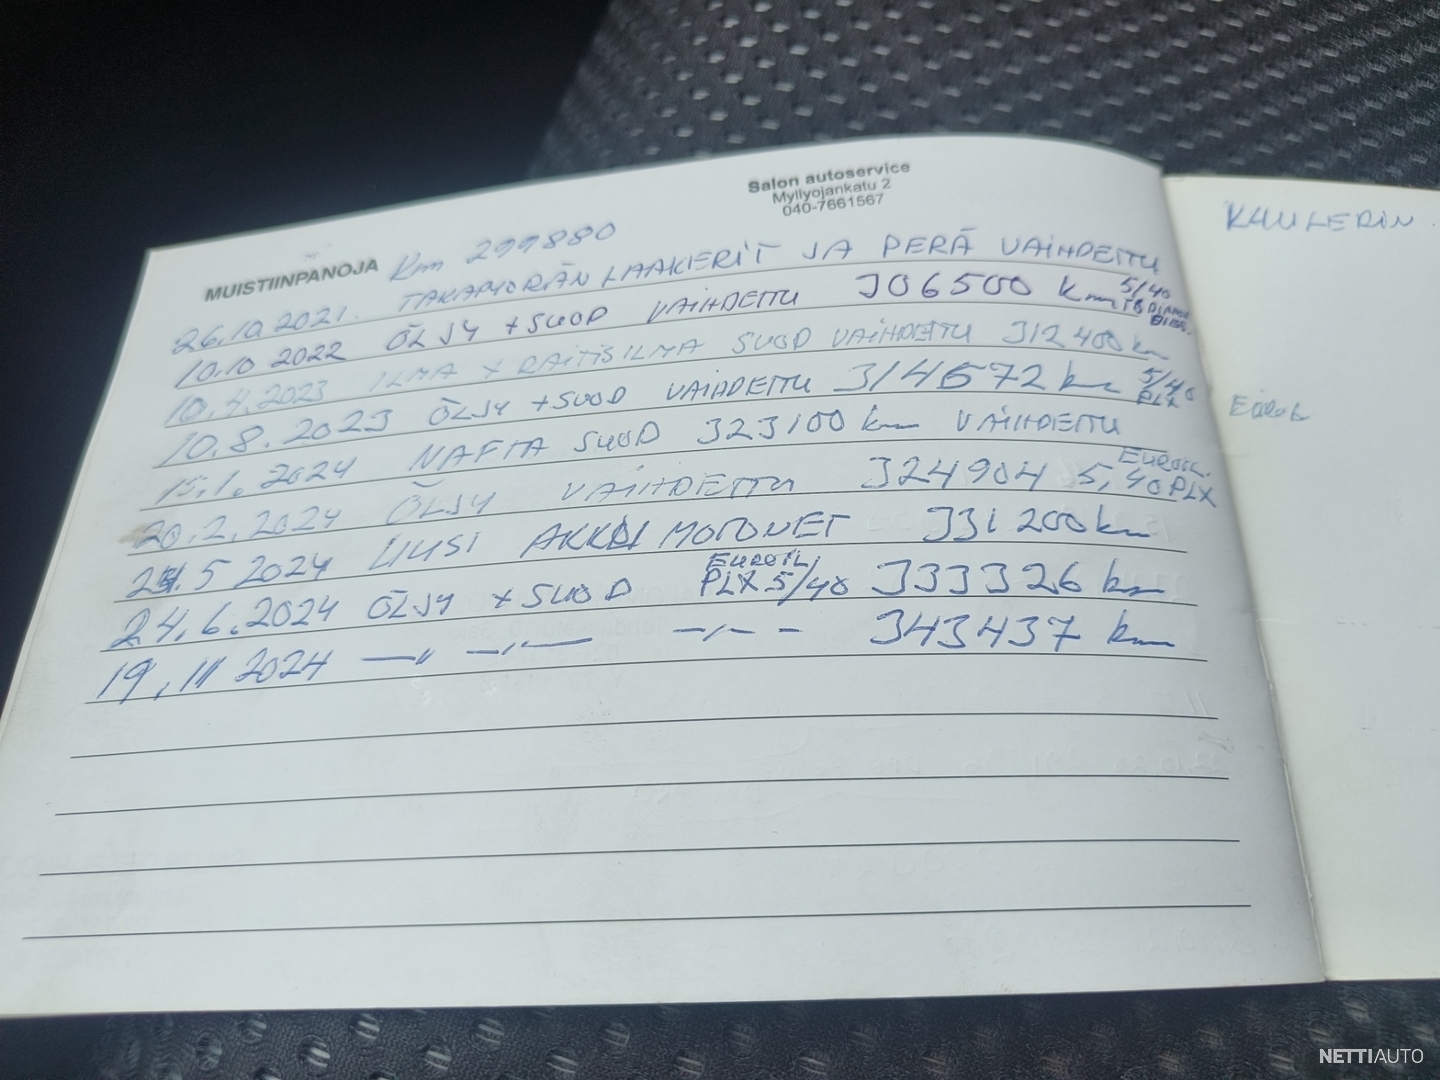 Salon autoservice
Myllyojankatu 2
040-7661567
MUISTIINPANOJA Km 299880
26.10 2021. TAKAPYÖRÄN LAAKERIT JA PERÄ VAIHDETTU
10.10 2022 ÖLJY + SUOD VAIHDETTU 306500 km 5/40
10.4.2023 ILMA + RAITISILMA SUOD VAIHDETTU 312400 km
10.8.2023 ÖLJY + SUOD VAIHDETTU 314672 km 5/40 PLX
15.1.2024 NAFTA SUOD 323100 km VAIHDETTU
20.2.2024 ÖLJY VAIHDETTU 324904 5,40 PLX EUROIL
24.5 2024 UUSI AKKU MOTONET 331200 km
24.6.2024 ÖLJY + SUOD EUROIL PLX 5/40 333326 km
19.11 2024 —〃— —〃— —〃— 343437 km
NETTIAUTO